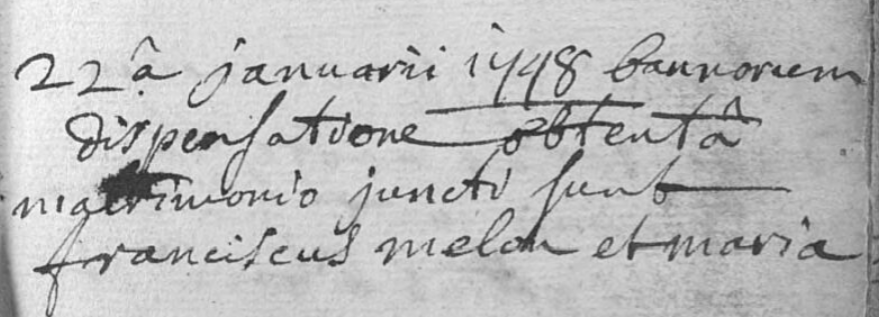 22â januarii 1748 bannorum
dispensatione obtentâ
matrimonio juncti sunt
franciscus melon et maria